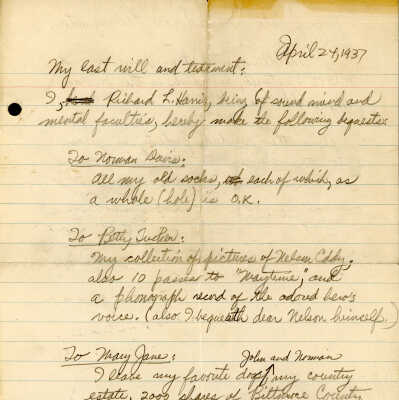 April 24, 1937
My last will and testament:
I, Richard L. Harris, being of sound mind and
mental faculties, hereby make the following bequests:
To Norman Davis:
All my old socks, each of which, as
a whole (hole) is O.K.
To Betty
My collection of pictures of Nelson Eddy,
also 10 passes to "Maytime", and
a phonograph record of the adored hero's
voice. (also I bequeath dear Nelson himself.)
To Mary Jane: John and Norman
I leave my favorite my country
estate, 2000 shares of Biltmore Country